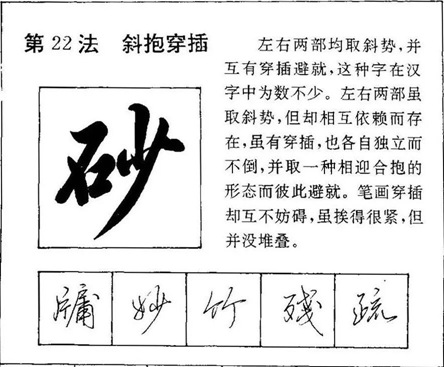 第22法 斜抱穿插
左右两部均取斜势,并
互有穿插避就,这种字在汉
字中为数不少。左右两部虽
取斜势,但却相互依赖而存
在,虽有穿插,也各自独立而
不倒,并取一种相迎合抱的
形态而彼此避就。笔画穿插
却互不妨碍,虽挨得很紧,但
并没堆叠。
砂
牗 妙 竹 残 疏